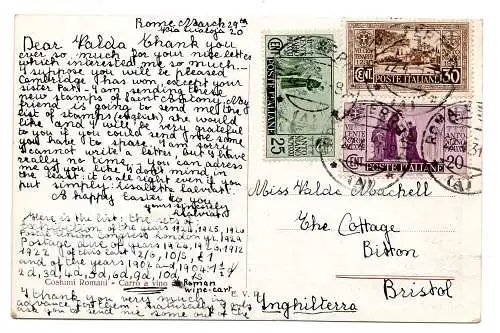 Rome March 29th
Via Eualoja 20
Dear Valda Thank you
ever so much for your nice letter
which interested me so much.—
I suppose you will be pleased
Cambridge has won, except your
sister Pat! — I am sending these
new stamps of Saint Anthony. My
friend is going to send me the
list of stamps (english) she would
like and will be very grateful
to you if you could send me some
you have to spare. I am sorry I
cannot write a letter, but I have
really no time. you can address
me as you like I don't mind in
the least. it is all right if you
put simply: Lisaletta Calvari
A happy Easter to you
yours sincerely
L. Calvari
Here is the list: the sets of:
Exhibition of the years 1924, 1925, 1926
Postal Congress London of yr. 1929
Postage due of years 1924, 1926, 1912
1922 of this last 12/6, 10/S, £1
and of the years 1902 and 1904 1½d
2d, 3d, 4d, 5d, 6d, 9d, 10d, 1s
Costumi Romani - Carro a vino
Roman
wine-cart
E. V. R.
I thank you very much in
advance for them. naturally
ask you to send me some out of the
POSTE ITALIANE
CENT.
25
POSTE ITALIANE
CENT.
30
POSTE ITALIANE
CENT.
20
ROMA
Miss Valda Machell
The Cottage
Bitton
Bristol
Inghilterra